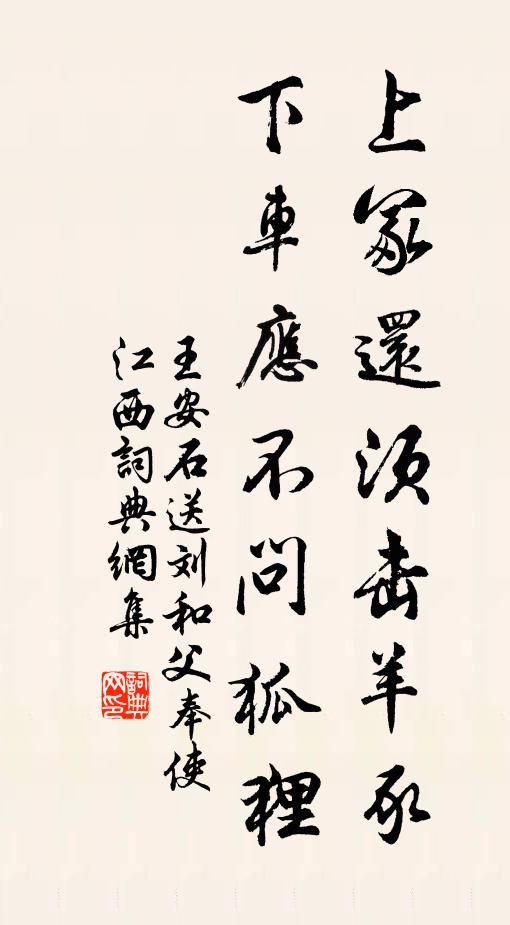 上冢還須击羊豕
下車應不問狐狸
王安石送刘和父奉使
江西詞典網集
詞典网印